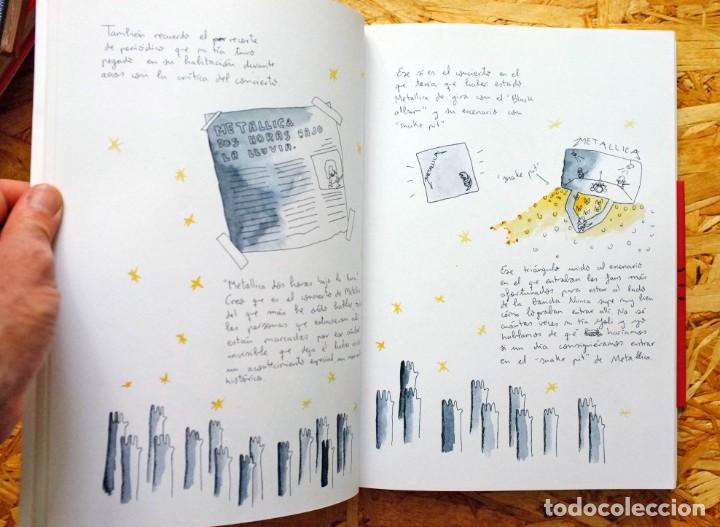 También recuerdo el recorte
de periódico que mi tía tuvo
pegado en su habitación durante
años con la crítica del concierto.
METALLICA
DOS HORAS BAJO
LA LLUVIA.
"Metallica dos horas bajo la lluvia"
Creo que es el concierto de Metallica
del que más he oído hablar
las personas que estuvieron allí
están marcadas por ese
invisible que deja el haber
un acontecimiento especial
histórico.
Ese sí es el concierto en el
que tenía que haber estado.
Metallica de gira con el "Black
album" y su escenario con
"snake pit"
METALLICA
"snake pit"
METALLICA
Ese triángulo unido al escenario
en el que entraban los fans más
afortunados para estar al lado
de la banda. Nunca supe muy bien
cómo lograban entrar allí. No sé
cuántas veces mi tía y yo
hablamos de qué haríamos
si un día consiguiéramos entrar
en el "snake pit" de Metallica.
todocoleccion